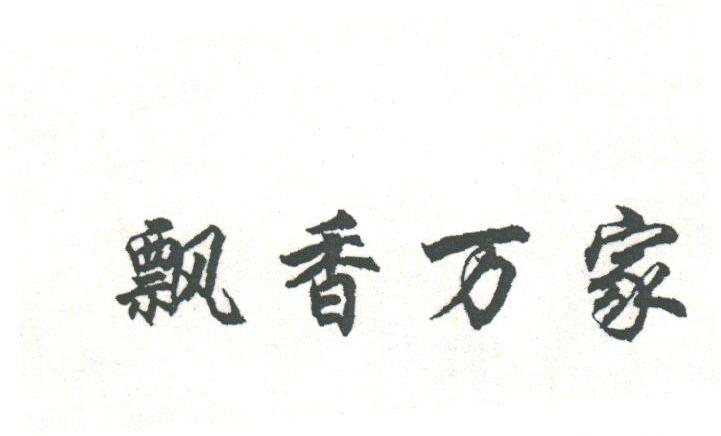 飘香万家